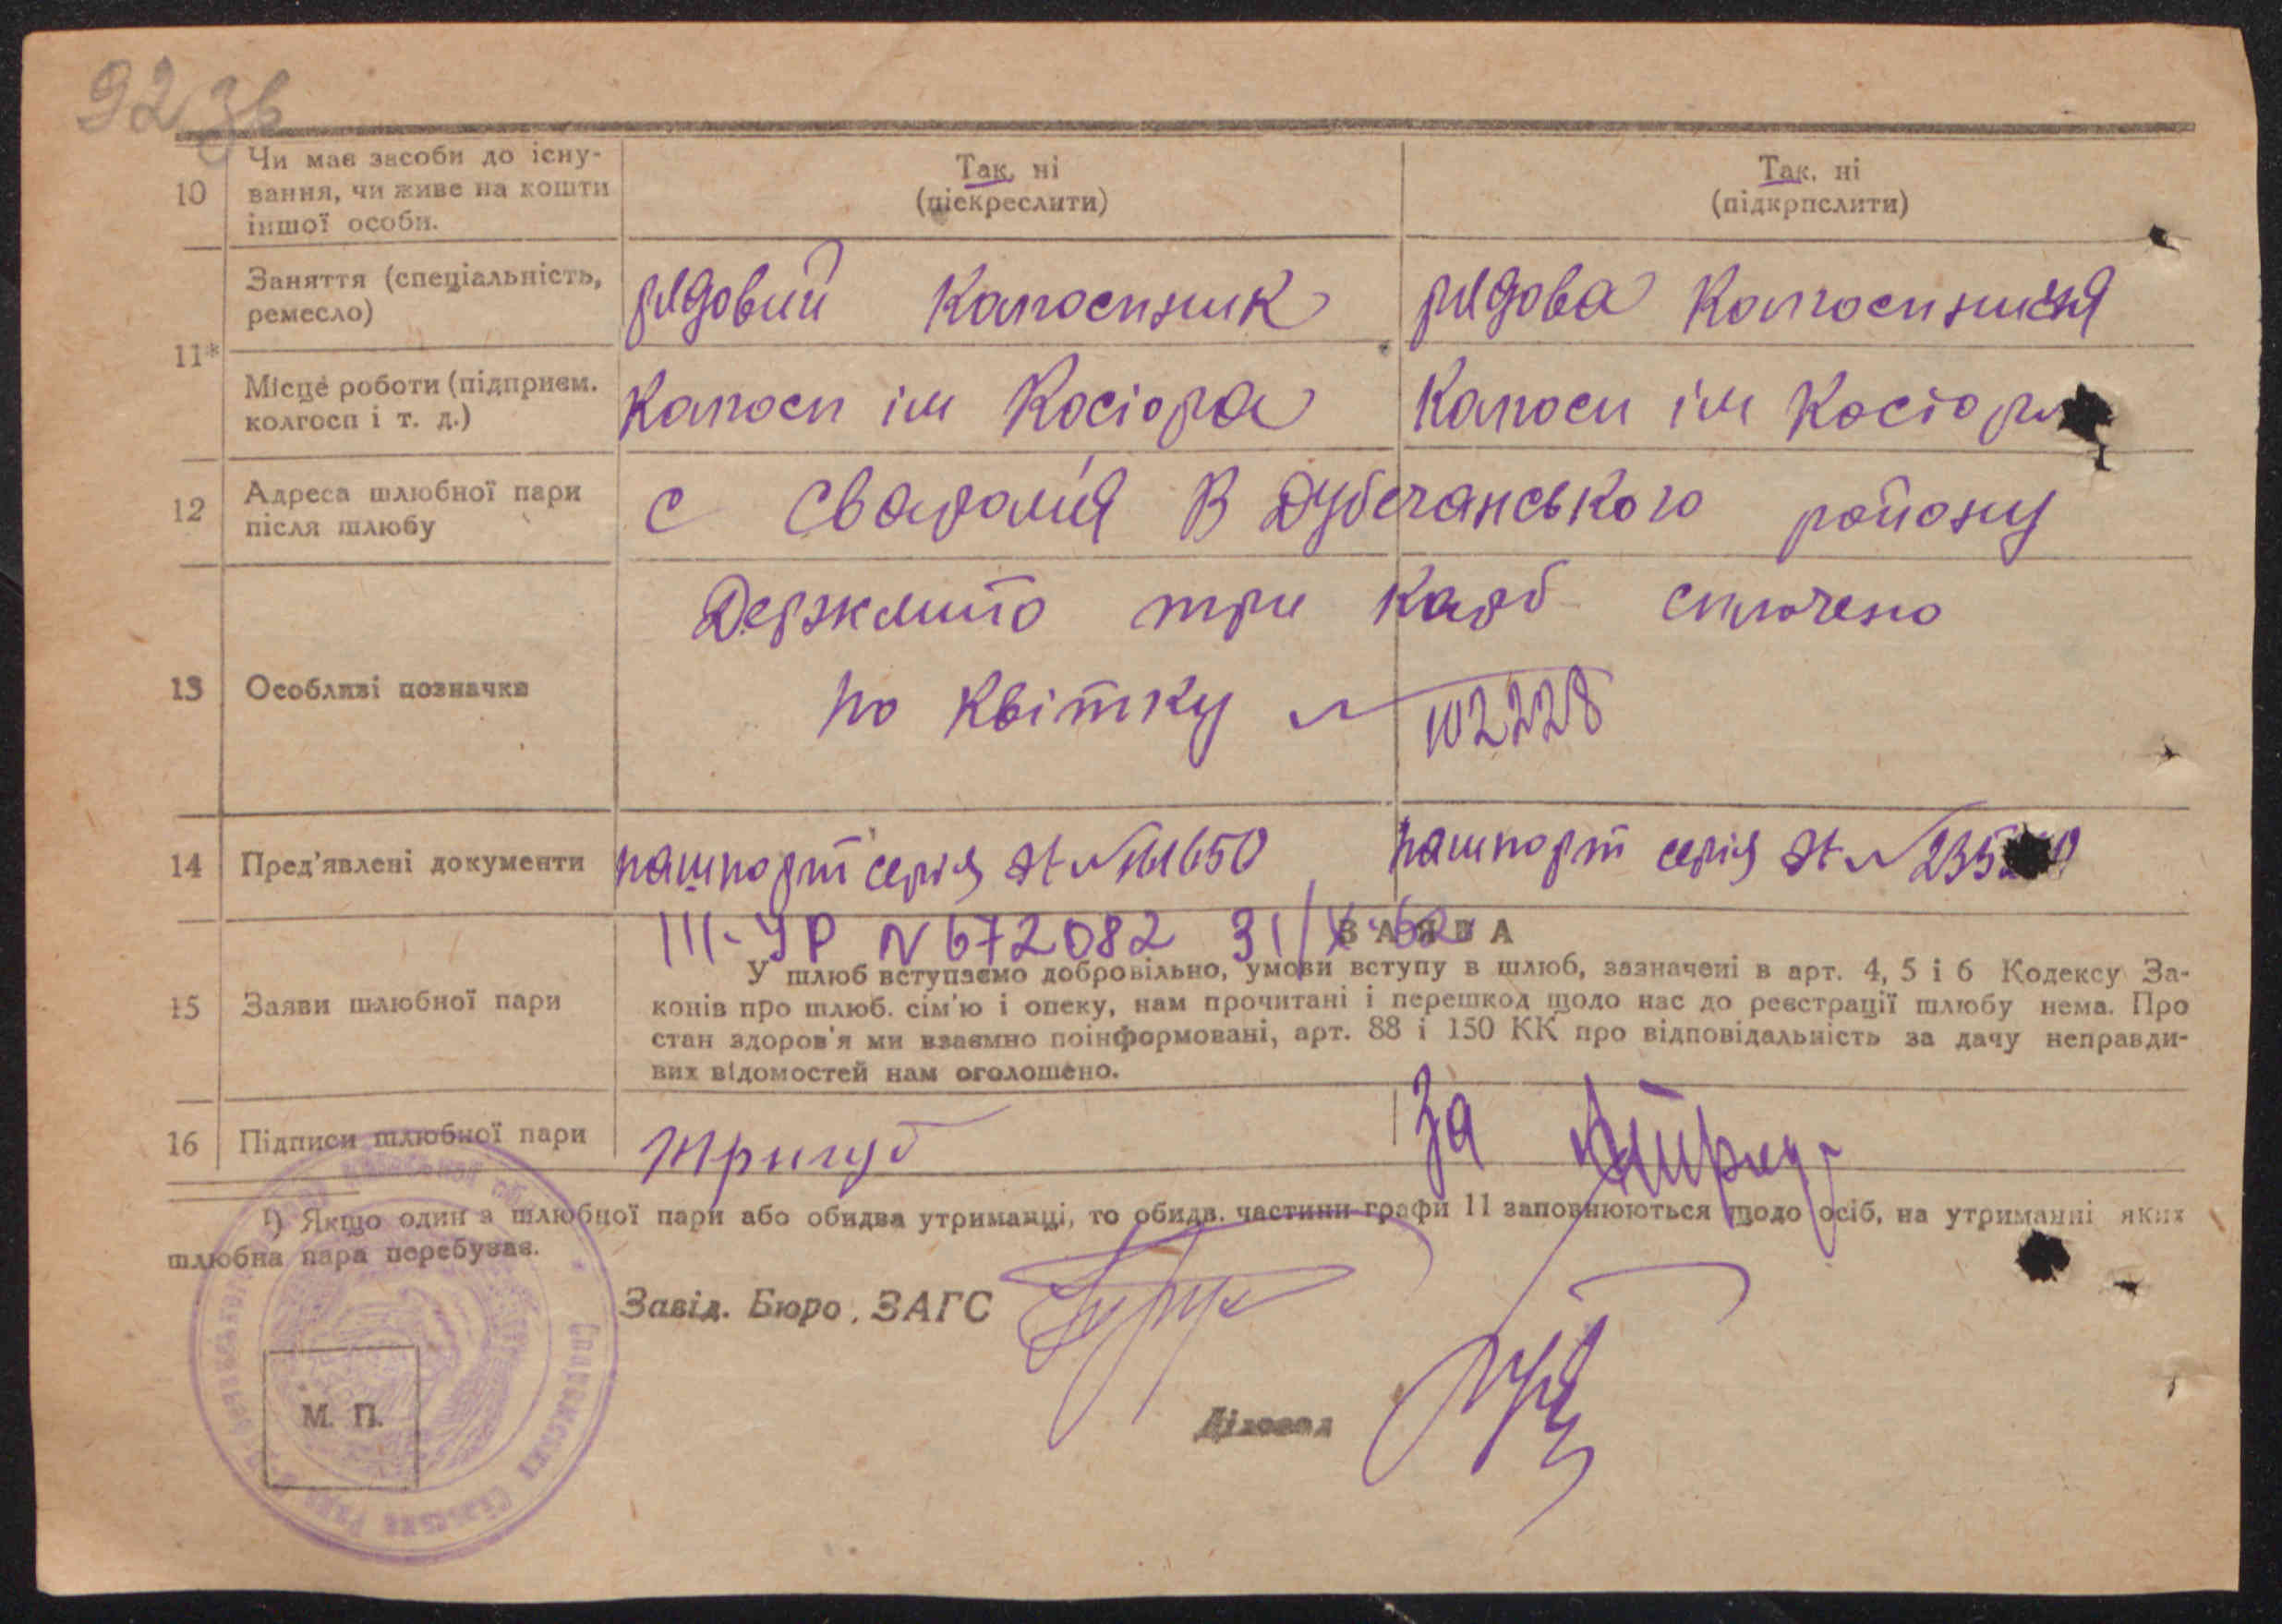 92 зв
10
Чи має засоби до існу-
вання, чи живе на кошти
іншої особи.
Так, ні
(піскреслити)
Так, ні
(підкрпслити)
11*
Заняття (специіальність,
ремесло)
рядовий колгоспник
рядова колгоспниця
Місце роботи (підприєм.
колгосп і т. д.)
Колгосп ім Косіора
Колгосп ім Косіора
12
Адреса шлюбної пари
після шлюбу
с Сваромія В Дубечанського району
13
Особливі позначки
Держмито три карб сплочено
по квітку № 102228
14
Пред'явлені документи
пашпорт серія № 161650
пашпорт серія № 235
III-УР N 672082 31/X-62
15
Заяви шлюбної пари
ЗАЯВА
У шлюб вступаємо добровільно, умови вступу в шлюб, зазначені в арт. 4, 5 і 6 Кодексу За-
конів про шлюб. сім'ю і опеку, нам прочитані і перешкод щодо нас до реєстрації шлюбу нема. Про
стан здоров'я ми взаємно поінформовані, арт. 88 і 150 КК про відповідальність за дачу неправди-
вих відомостей нам оголошено.
16
Підписи шлюбної пари
Тригуб
За
¹) Якщо один з шлюбної пари або обидва утриманці, то обидв. частини графи 11 заповнюються щодо осіб, на утриманні яких
шлюбна пара перебуває.
Завід. Бюро, ЗАГС
М. П.
Діловод